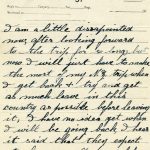 I am a little disappointed
now, after looking forward
to the trip for so long but
now I will just have to make
the most of my N.Z. trip when
I get back & try and get
as much leave in this
country as possible before leaving
it, I have no idea yet when
I will be going back, I hear
it said that they expect